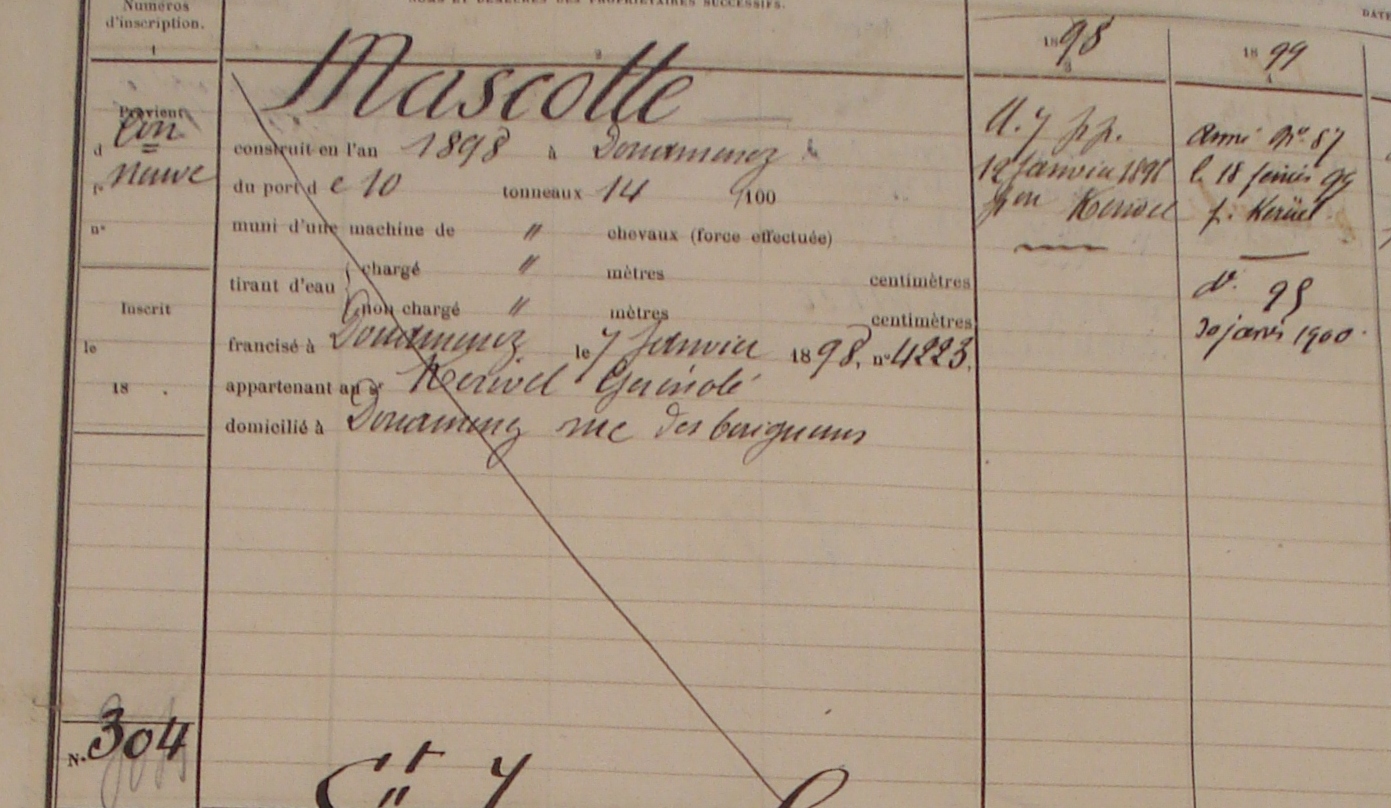 Numéros
d'inscription.
1
NOMS ET DEMEURES DES PROPRIÉTAIRES SUCCESSIFS.
2
1898
3
1899
4
DATE
Mascotte
Provient
d
neuve
fe
n°
Inscrit
le
18 .
construit en l'an 1898 à Douarnenez
du port de 10 tonneaux 14 /100
muni d'une machine de " chevaux (force effectuée)
tirant d'eau
chargé " mètres centimètres
non chargé " mètres centimètres
francisé à Douarnenez le 7 Janvier 1898. n° 4223.
appartenant au sr Kerivel Guénolé
domicilié à Douarnenez rue des
A. 7 pp.
12 Janvier 1898
pon Kerivel
armé No 87
l. 18 février 99
p. Kerivel
do. 95
30 janvier 1900.
N. 304